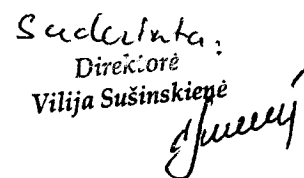 Suderinta:
Direktorė
Vilija Sušinskienė